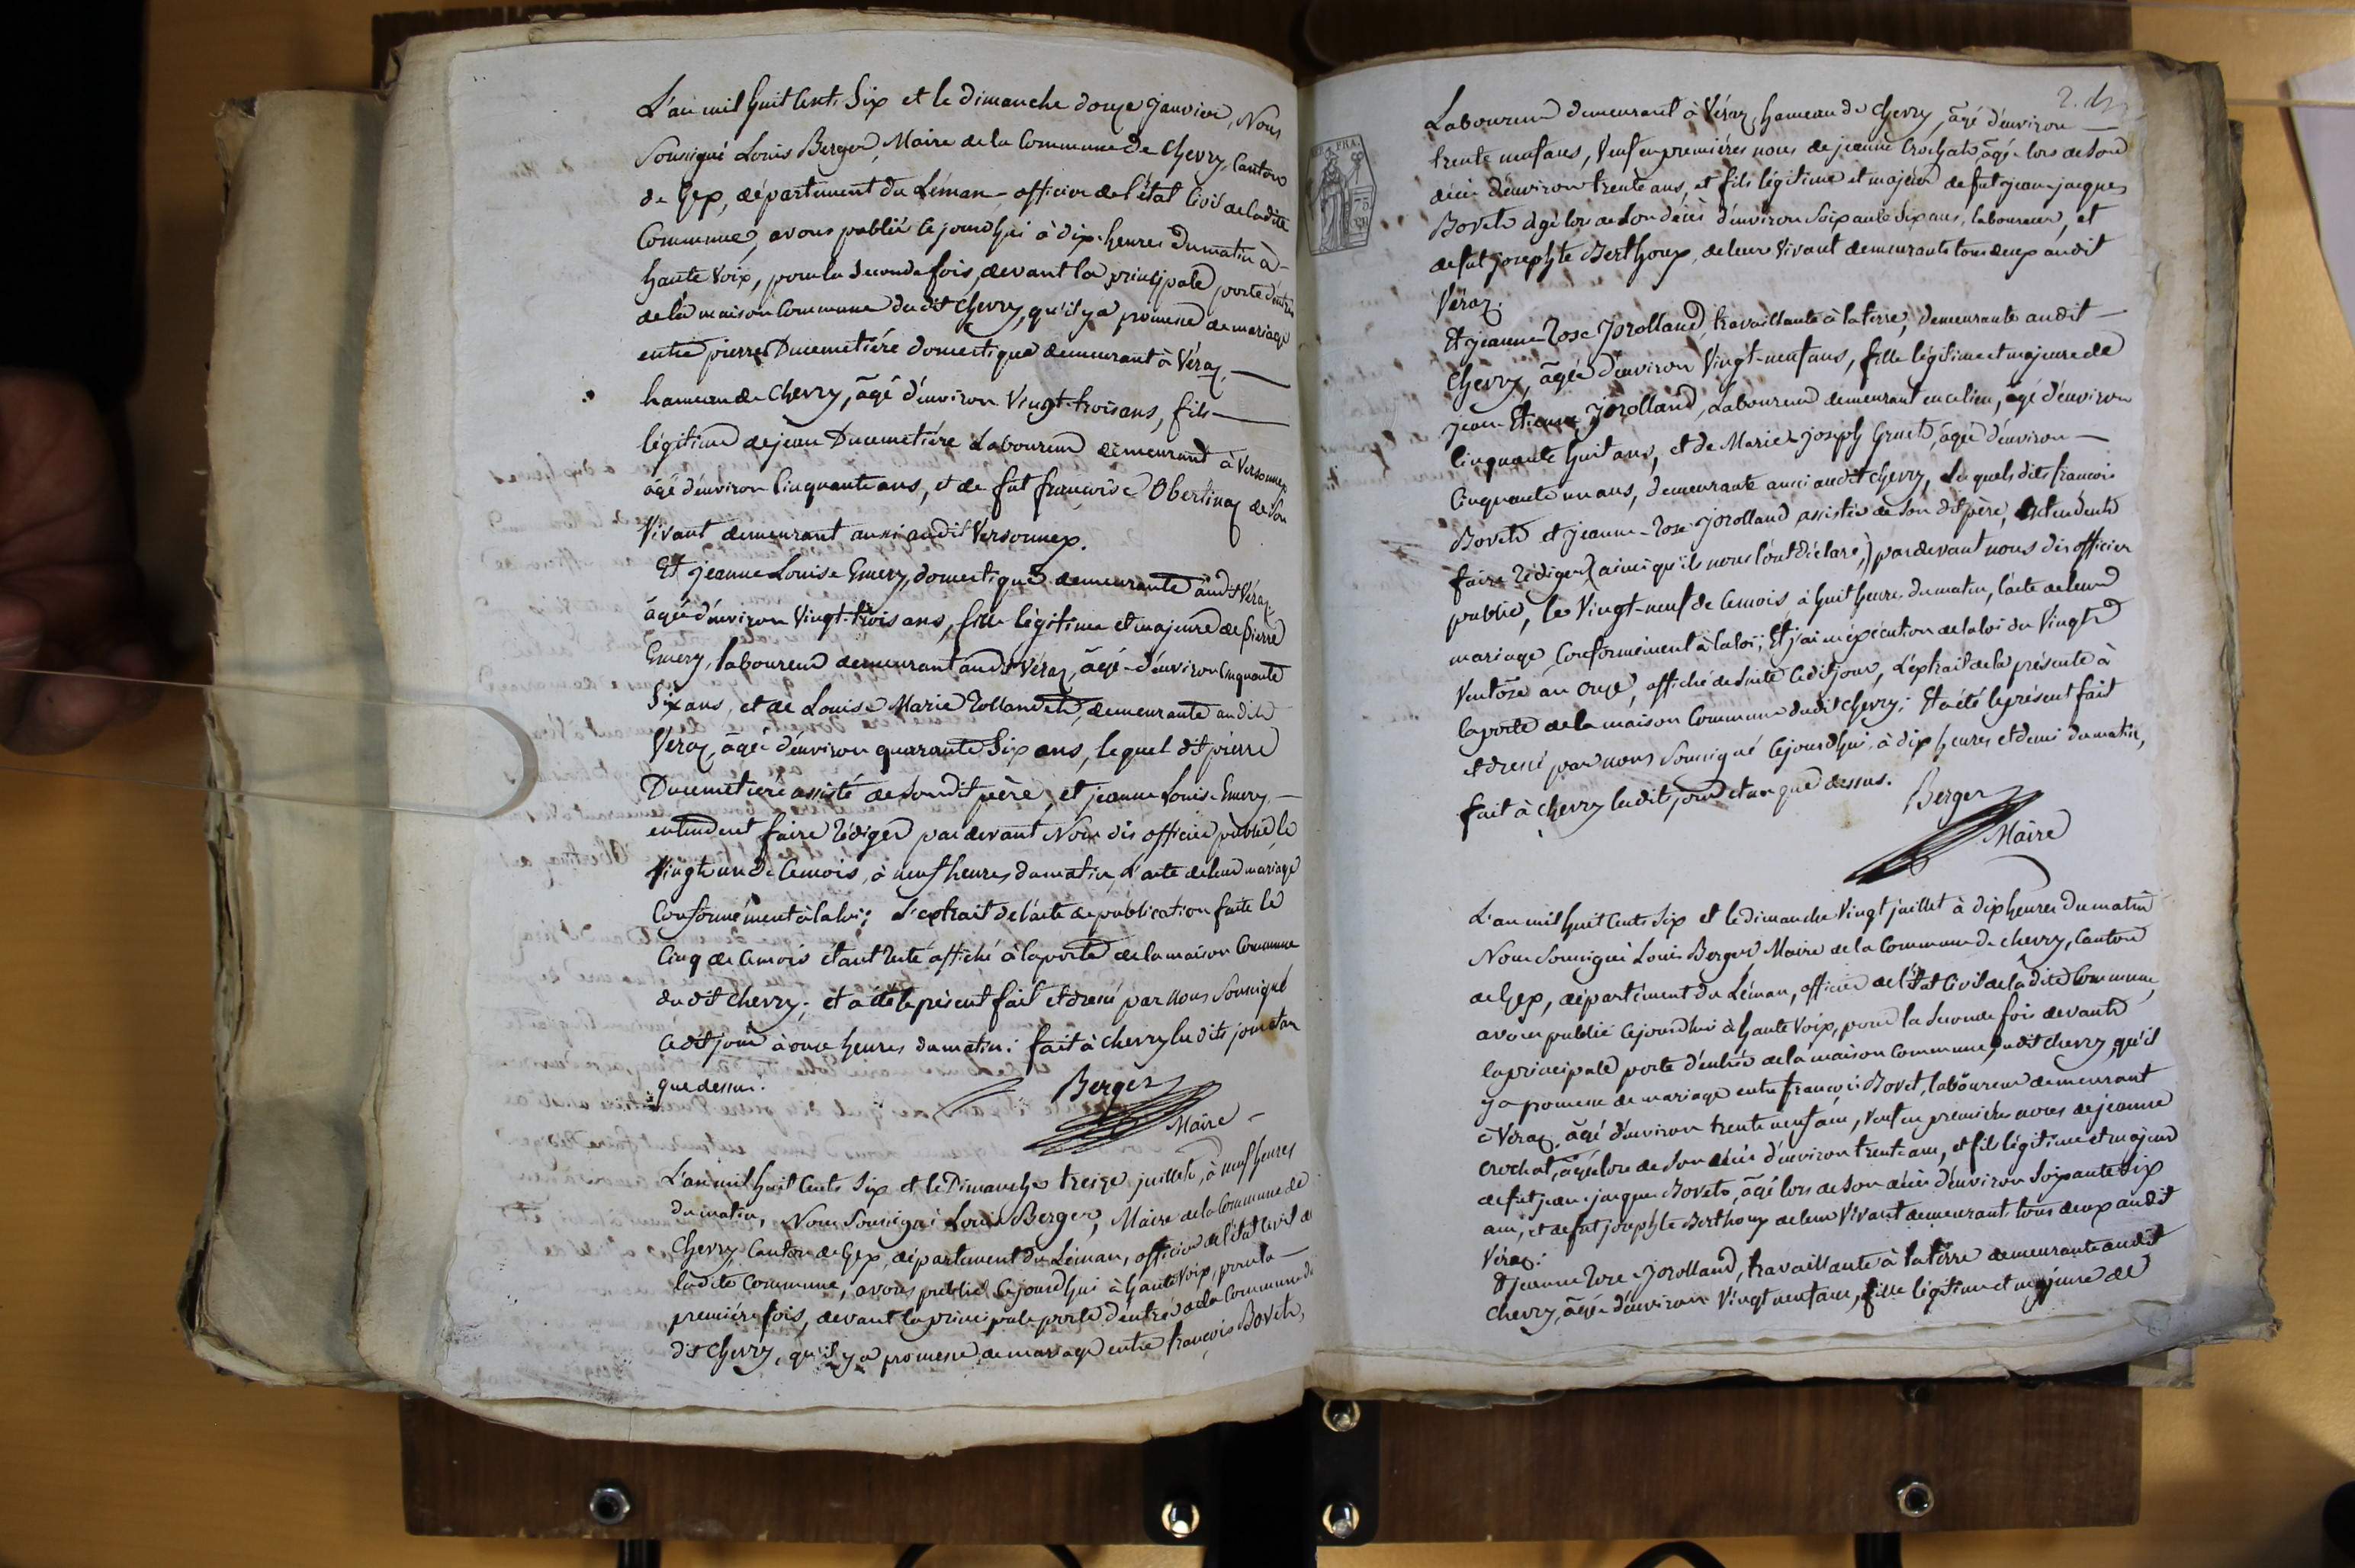 L'an mil huit Cent Six et le dimanche douze janvier, Nous
Soussigné Louis Berger, Maire de la Commune de Chevry, Canton
de Gex, département du Léman, officier de l'état Civil de ladite
Commune, avons publié cejourdhui à dix heures du matin à-
haute Voix, pour la Seconde fois, devant la principale porte d'entrée
de la maison Commune dudit Chevry, qu'il y a promesse de mariage
entre pierre Ducimetière domestique demeurant à Véraz,
hameau de Chevry, âgé d'environ Vingt-trois ans, fils
légitime de jean Ducimetière Laboureur demeurant à Versonnex
âgé d'environ Cinquante ans, et de fut françoise Obertinaz de Son
Vivant demeurant aussi audit Versonnex.
Et jeanne Louise Emery, domestique demeurante audit Véraz,
âgée d'environ Vingt-trois ans, fille légitime et majeure de pierre
Emery, laboureur demeurant audit Véraz, âgé d'environ Cinquante
Six ans, et de Louise Marie Rollandet, demeurante audit
Veraz, âgée d'environ quarante Six ans, lequel dit pierre
Ducimetière assisté de Sondit père, et jeanne Louise Emery
entendent faire rédiger par devant Nous dis officier public, le
Vingt un de Cemois, à neuf heures du matin, l'acte de leur mariage
Conformément à la loi; L'extrait de l'acte de publication faite le
Cinq de Cemois étant resté affiché à la porte de la maison Commune
dudit Chevry; et a été le présent fait et dressé par nous Soussigné
Cedit jour à onze heures du matin: fait à Chevry lesdits jour et an
que dessus.
Berger
Maire
L'an mil huit Cents Six et le Dimanche treize juillet, à neuf heures
du matin, Nous Soussigné Louis Berger, Maire de la Commune de
Chevry, Canton de Gex, département du Léman, officier de l'état Civil de
ladite Commune, avons publié Cejourdhui à haute Voix, pour la
première fois, devant la principale porte d'entrée de la Commune du
dit Chevry, qu'il y a promesse de mariage entre françois Bovet,
2.
Laboureur demeurant à Véraz, hameau de Chevry, âgé d'environ
trente neuf ans, Veuf en premières noces de jeanne Crochat, âgée lors de Son
décès d'environ trente ans, et fils légitime et majeur de fut jean-jacques
Bovet âgé lors de Son décès d'environ Soixante Six ans, laboureur, et
de fut josephte Berthoux, de leur Vivant demeurants tous deux audit
Véraz.
Et jeanne-Rose Jorolland, travaillante à la terre, demeurante audit
Chevry, âgée d'environ Vingt-neuf ans, fille légitime et majeure de
jean Etienne Jorolland, Laboureur demeurant en ce lieu, âgé d'environ
Cinquante huit ans, et de Marie-joseph Gruet, âgée d'environ
Cinquante un ans, demeurante aussi audit Chevry, Lesquels dits françois
Bovet et jeanne-Rose Jorolland assistée de Son dit père, entendent
faire rédiger (ainsi qu'ils nous l'ont déclaré,) par devant nous dis officier
public, le Vingt-neuf de Cemois à huit heures du matin, l'acte de leur
mariage Conformément à la loi; Et j'ai en exécution de la loi du Vingt
Ventôse an onze, affiché de Suite Cedit jour, L'extrait de la présente à
la porte de la maison Commune dudit Chevry; Et a été le présent fait
et dressé par nous Soussigné Cejourdhui, à dix heures et demi du matin,
fait à Chevry lesdits jour et an que dessus.
Berger
Maire
L'an mil huit Cents Six et le dimanche Vingt juillet à dix heures du matin
Nous Soussigné Louis Berger, Maire de la Commune de Chevry, Canton
de Gex, département du Léman, officier de l'état Civil de la dite Commune,
avons publié Cejourdhui à haute Voix, pour la Seconde fois devant
la principale porte d'entrée de la maison Commune dudit Chevry, qu'il
y a promesse de mariage entre françois Bovet, laboureur demeurant
à Véraz, âgé d'environ trente neuf ans, Veuf en premières noces de jeanne
Crochat, âgée lors de Son décès d'environ trente ans, et fils légitime et majeur
de fut jean-jacques Bovet, âgé lors de Son décès d'environ Soixante Six
ans, et de fut josephte Berthoux de leur Vivant demeurant tous deux audit
Véraz.
Et jeanne Rose Jorolland, travaillante à la terre demeurante audit
Chevry, âgée d'environ Vingt neuf ans, fille légitime et majeure de